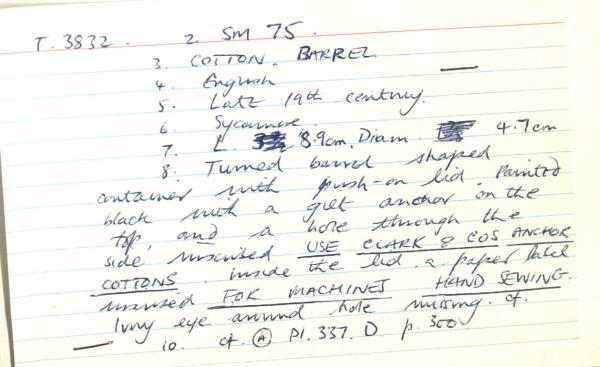 T. 3832. 2 SM 75.
3. COTTON. BARREL
4. English
5. Late 19th century.
6. Sycamore.
7. L. 8.9cm. Diam. 4.7cm
8. Turned barrel shaped
container with push-on lid. Painted
black with a gilt anchor on the
top, and a hole through the
side inscribed USE CLARK & COS ANCHOR
COTTONS. inside the lid a paper label
inscribed FOR MACHINES HAND SEWING.
Ivory eye around hole missing. cf.
10. cf. A Pl. 337. D p. 300